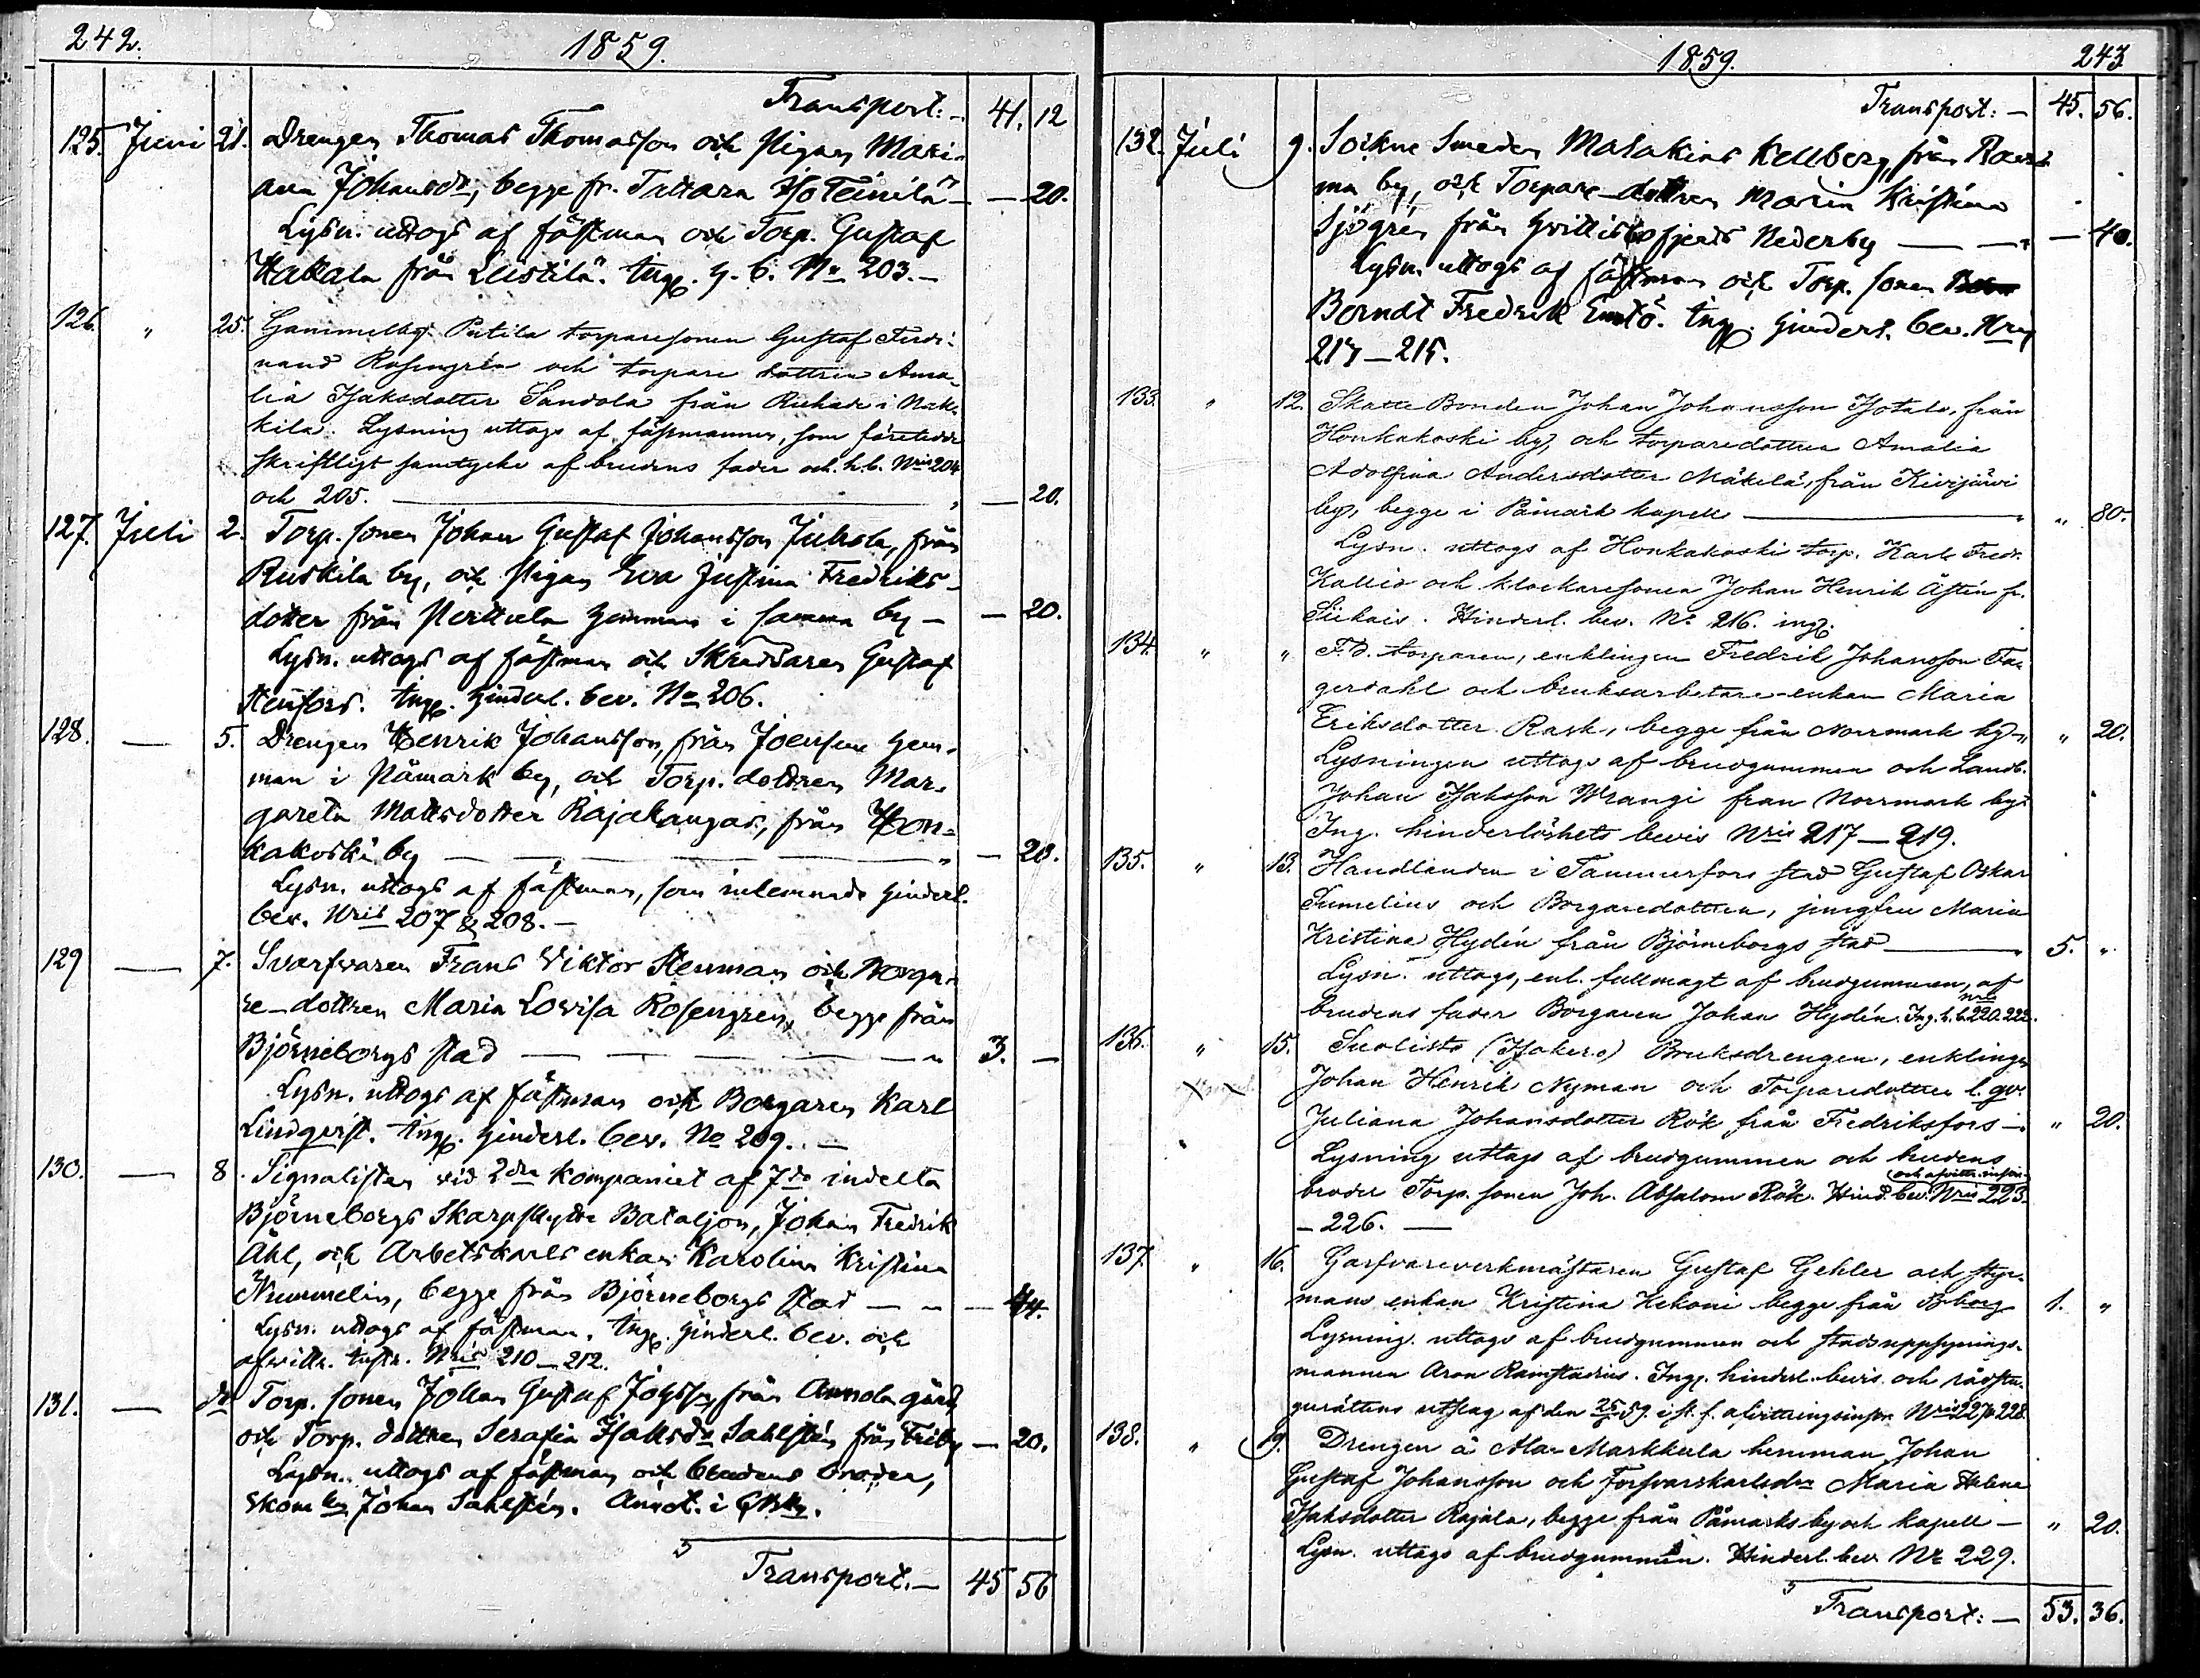 242. 1859.
Transport: - 41. 12
125. Juni 21. Drengen Thomas Thomasson och Pigan Mari-
ana Johansdr, begge fr. Tattara Iso Teinilä - - 20.
Lysn. uttogs af fästman och Torp. Gustaf
Hakala från Leistilä. Ingg. H. b. No 203. -
126. " 25. Gammelby Putila torparesonen Gustaf Ferdi-
nand Rosengrén och torpare dottren Ama-
lia Isaksdotter Sandola från Ruhade i Nak-
kila. Lysning uttogs af fästmannen, som företedde
skriftligt samtycke af brudens fader och h.b. Nris 204
och 205. — 20.
127. Juli 2. Torp. sonen Johan Gustaf Johansson Juhola, från
Ruskila by, och Pigan Eva Justina Fredriks-
dotter från Perttula hemman i samma by - - 20.
Lysn. uttogs af fästman och Skräddaren Gustaf
Stenfors. Ingg. Hinderl. bev. No 206.
128. — 5. Drengen Henrik Johansson, från Joensuu hem-
man i Påmark by, och Torp. dottren Mar-
gareta Mattsdotter Rajakangas, från Hon-
kakoski by — — 20.
Lysn. uttogs af fästman, som inlemnade Hinderl.
bev. Nris 207 & 208. -
129 — 7. Svarfvaren Frans Viktor Stenman och Borga-
re-dottren Maria Lovisa Rosengren, begge från
Björneborgs stad — 3. —
Lysn. uttogs af fästman och Borgaren Karl
Lindqvist. Ingg. Hinderl. bev. No 209. -
130. — 8. Signalisten vid 2dra Kompaniet af 7de indelta
Björneborgs Skarpskytte Bataljon, Johan Fredrik
Åhl, och Arbetskarls enkan Karolina Kristina
Nummelin, begge från Björneborgs stad — - - 44.
Lysn. uttogs af fästman. Ingg. Hinderl. bev. och
afwittr. instr. Nris 210-212.
131. — do Torp. sonen Johan Gustaf från Annola gård
och Torp. dottren Serafia Isaksdr Sahlstén från Friby - 20.
Lysn. uttogs af fästman och brudens broder,
Skom Johan Sahlstén. Annot. i
Transport. - 45 56
1859. 243
Transport: - 45. 56.
132. Juli 9. Sockne Smeden Malakias Kellberg, från
ma by, och Torpare-dottren Maria Kristina
Sjögrén från Hvittisbofjerds Nederby — - 40.
Lysn. uttogs af fästman och Torp. sonen
Berndt Fredrik Ingg. Hinderl. bev. Nris
213-215.
133. " 12. Skatte Bonden Johan Johansson Isotalo, från
Honkakoski by, och torparedottren Amalia
Adolfina Andersdotter Mäkelä, från Kivijärvi
by, begge i Påmark kapell — " 80.
Lysn. uttogs af Honkakoski torp. Karl Fredr.
Kallio och klockaresonen Johan Henrik Åstén fr.
Siikais. Hinderl. bev. No 216. ingg.
134. " " F.d. torparen, enklingen Fredrik Johansson Fa-
gerdahl och bruksarbetare-enkan Maria
Eriksdotter Rask, begge från Norrmark by - " 20.
Lysningen uttogs af brudgummen och Landb.
Johan Isaksson Wrangi från Norrmark by.
Ing. hinderlöshets bevis Nris 217-219.
135. " 13. Handlanden i Tammerfors stad Gustaf Oskar
Sumelius och Borgaredottren, jungfru Maria
Kristina Hydén från Björneborgs stad — 5. "
Lysn. uttogs, enl. fullmagt af brudgummen, af
brudens fader Borgaren Johan Hydén. Ing. h.b. nris 220. 222.
136. " 15. Suolisto (Isakero) Bruksdrengen, enklingen
Johan Henrik Nyman och Torparedottren l. qv.
Juliana Johansdotter Rök från Fredriksfors - " 20.
Lysning uttogs af brudgummen och brudens
broder Torp. sonen Joh. Absalom Rök. Hind. bev. och afvittr. instr. Nris 223.
- 226. —
137. " 16. Garfvareverkmästaren Gustaf Gehler och styr-
mans enkan Kristina Hekoni begge från B-borg 1. "
Lysning uttogs af brudgummen och stadsuppsynings-
mannen Aron Ramstadius. Ingg. hinderl. bevis och rådstu-
gurättens utslag af den i st. f. afvittringsinstr. Nris 227 o 228.
138. " 19. Drengen å Ala-Markkula hemman Johan
Gustaf Johansson och Forsvarskarlsdr Maria Helena
Isaksdotter Rajala, begge från Påmarks by och kapell - " 20.
Lysn. uttogs af brudgummen. Hinderl. bev. Nr 229.
Transport: - 53. 36.